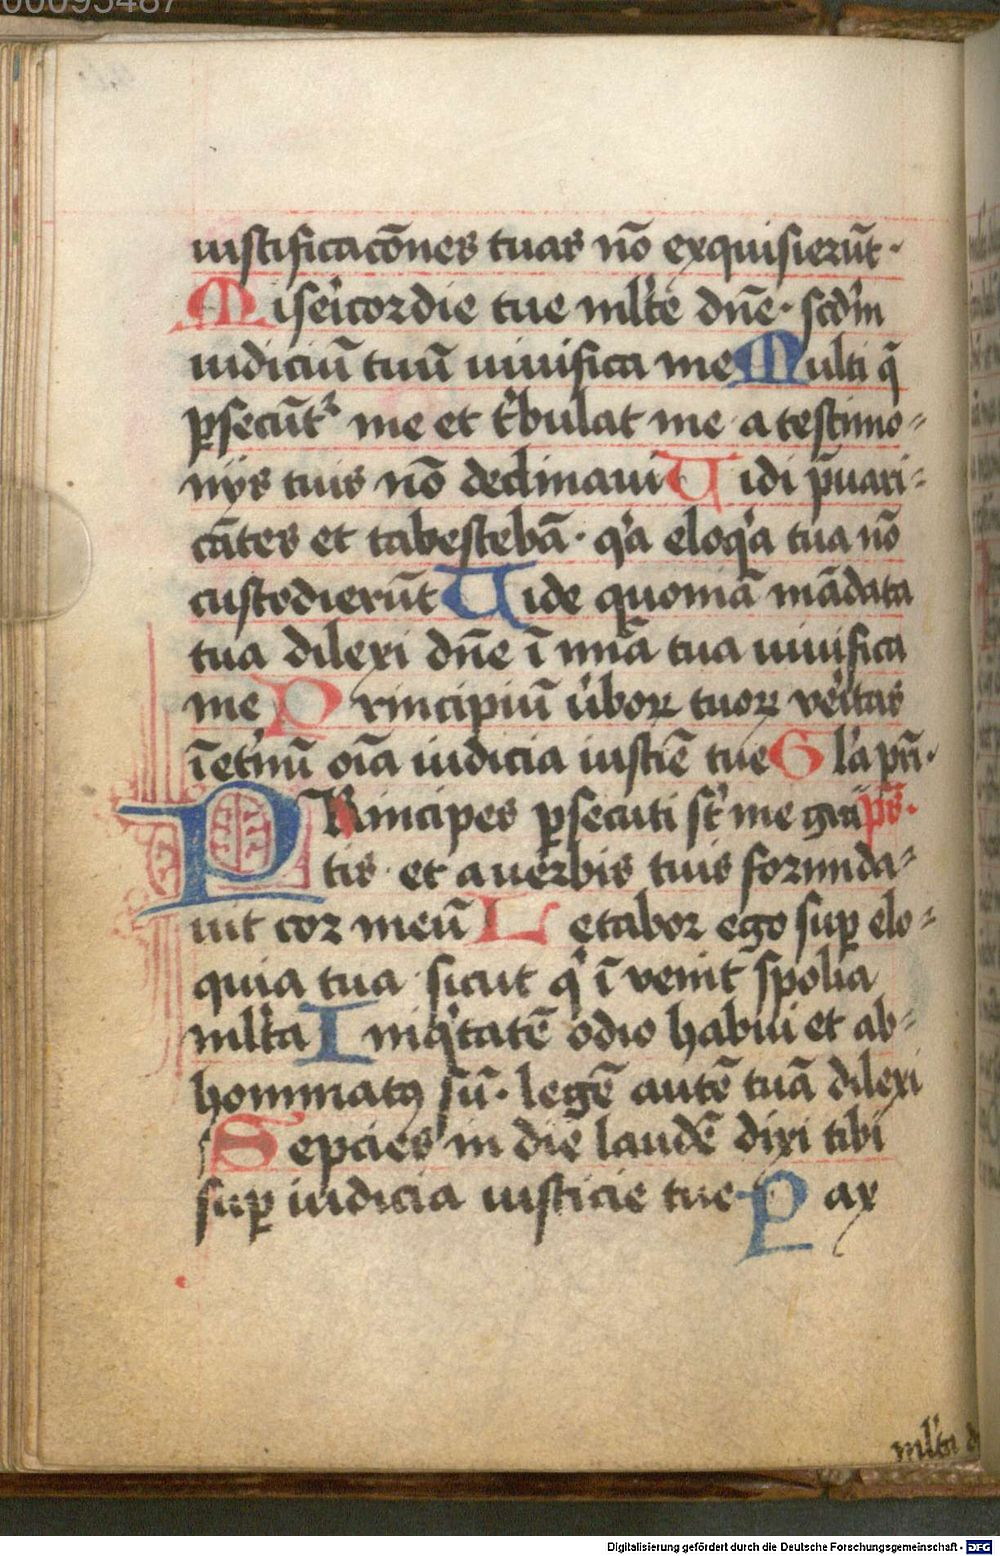 00095487
iustificacōnes tuas nō exquisierūt ·
Misericordie tue ml̄te dn̄e · scd̄m
iudiciū tuū uiuifica me Multi q̄
ꝑsecūtᷣ me et tͥbulāt me · a testimo-
nijs tuis nō declinaui Uidi p̄uari-
cātes et tabescebā · qͥa eloqͥa tua nō
custodierūt Uide quoniā mādata
tua dilexi dn̄e ī mīa tua uiuifica
me Principiū u̓boꝝ tuoꝝ ve̓itas
īet̓nū oīa iudicia iustiē tue Gl̓a pr̄i ·
PRincipes ꝑsecuti st̄ me gra pͥs ·
tis · et a uerbis tuis formida-
uit cor meū Letabor ego suꝑ elo-
quia tua · sicut qͥ īvenit spolia
ml̓ta Iniqͥtatē odio habui et ab-
hominatꝰ sū · legē autē tuā dilexi
Sepcies in die laudē dixi tibi
suꝑ iudicia iusticie tue Pax
ml̓ta
Digitalisierung gefördert durch die Deutsche Forschungsgemeinschaft - DFG